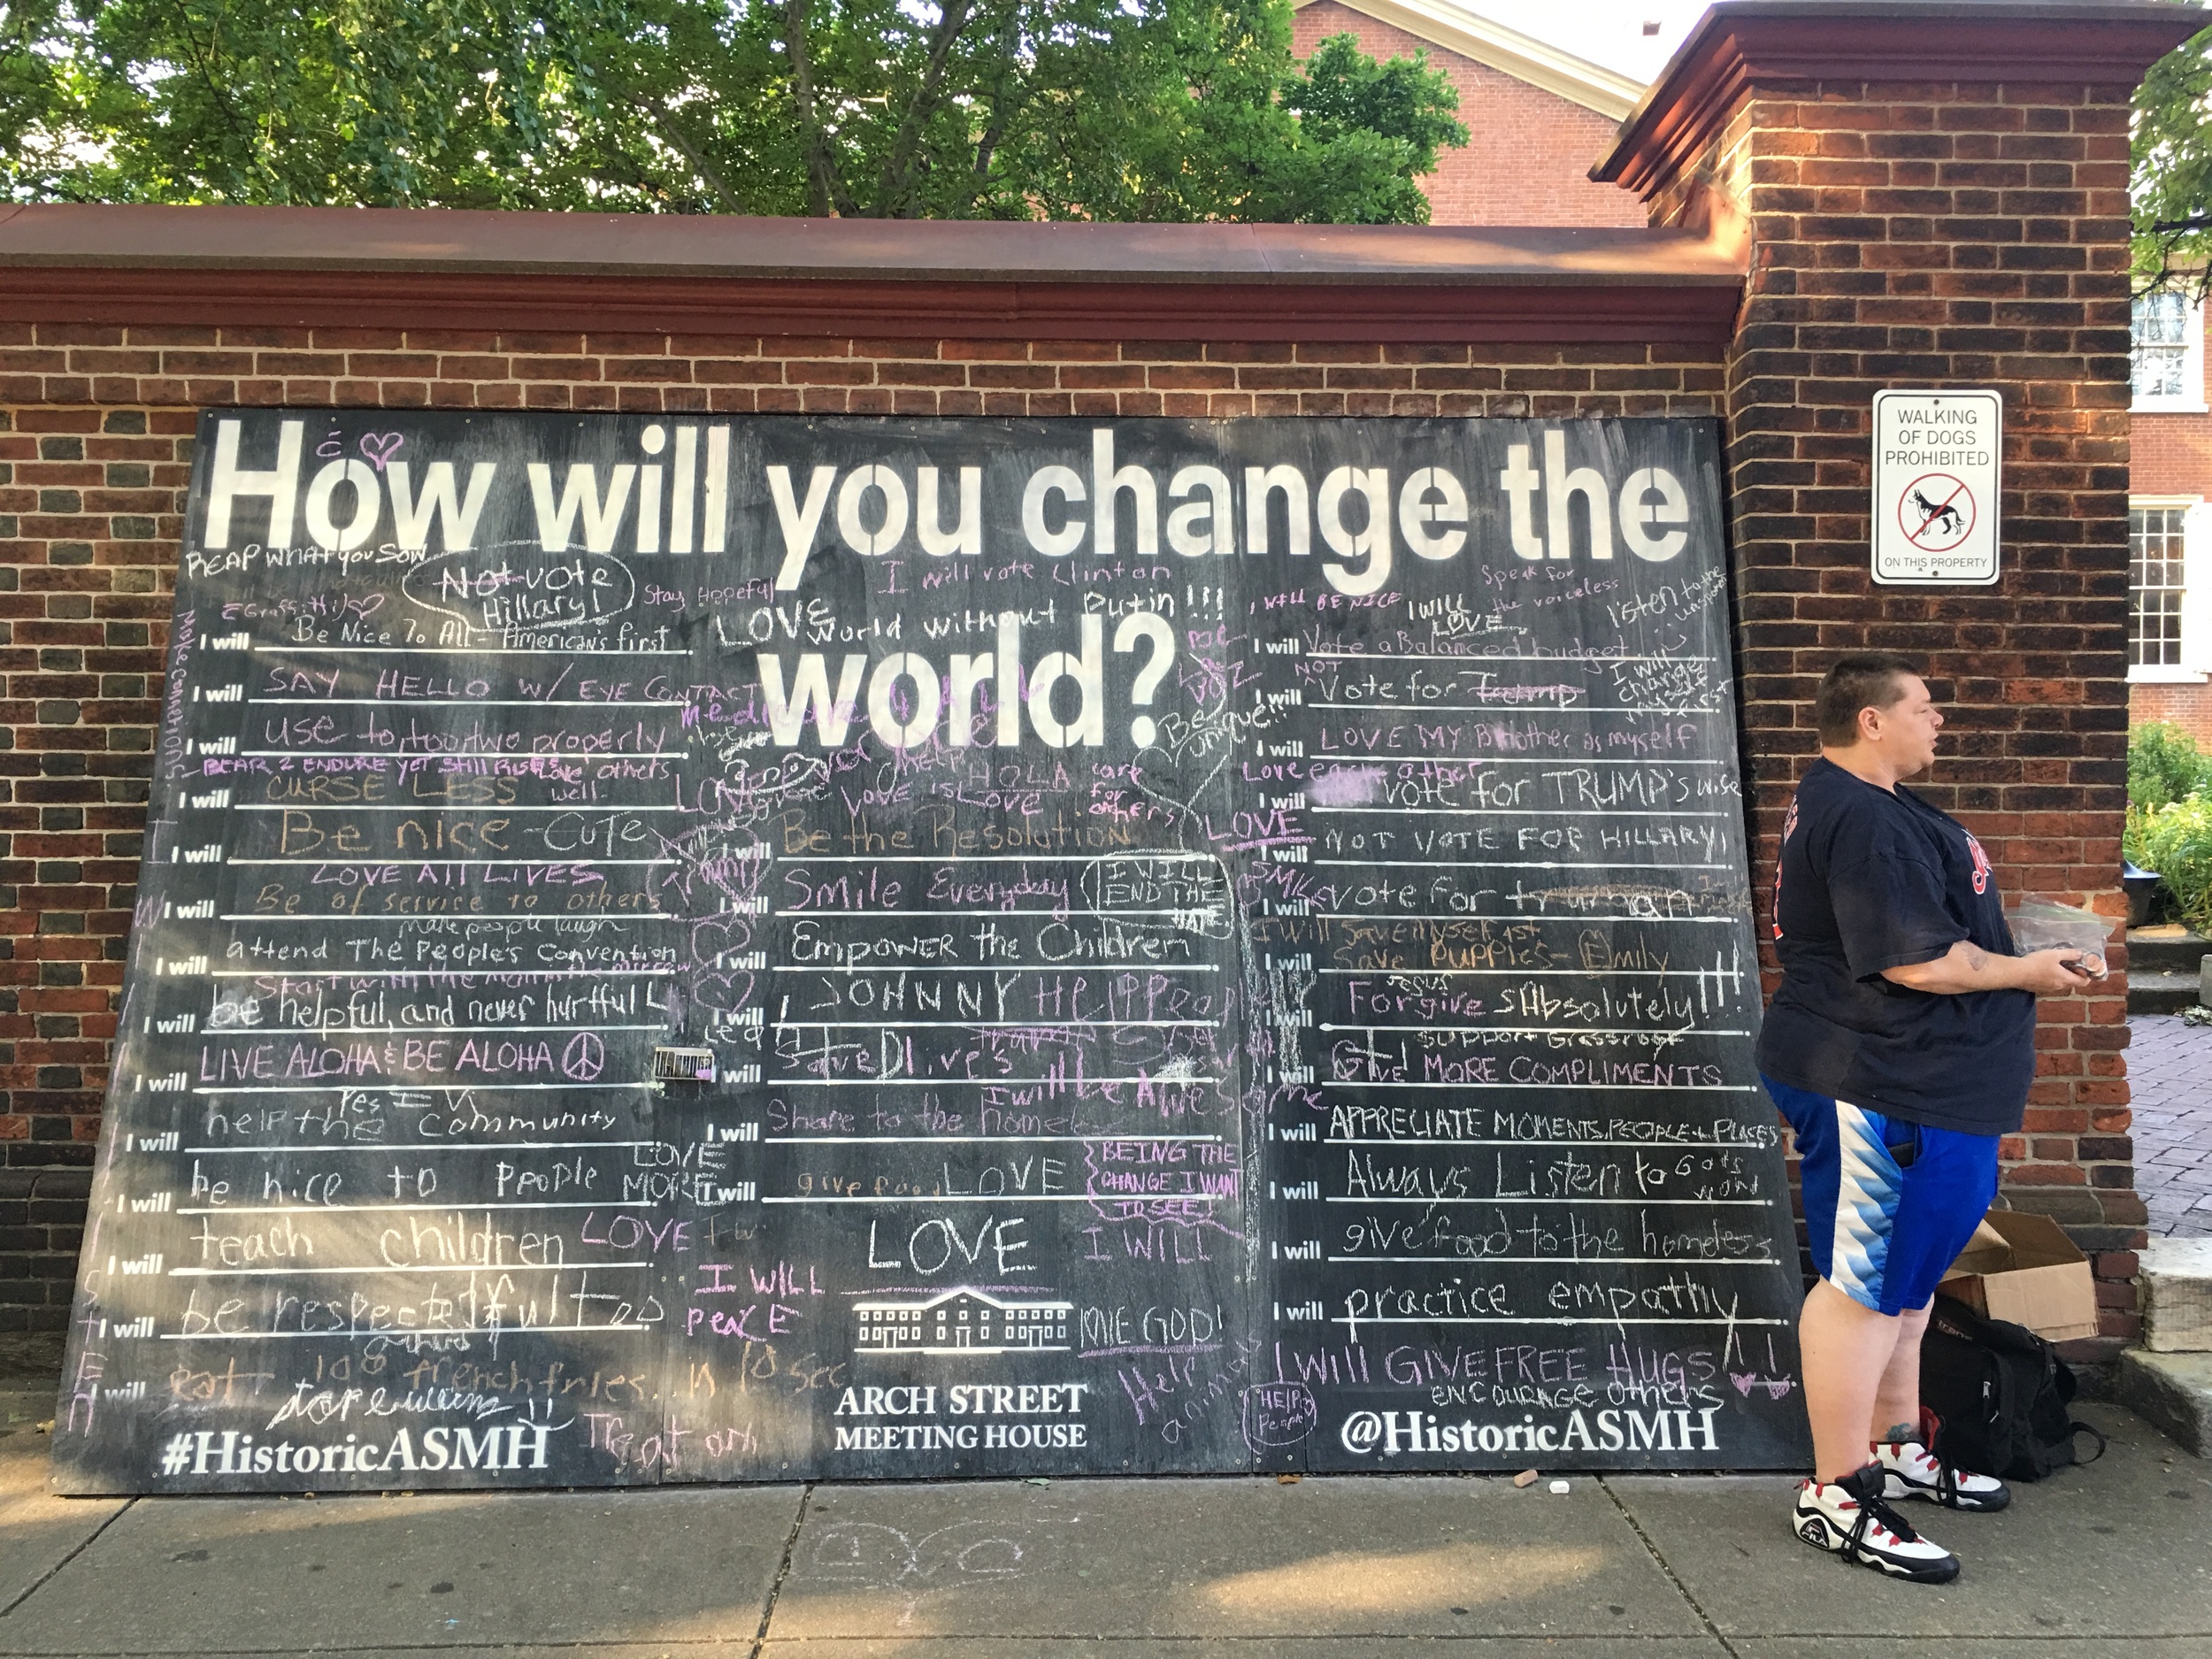 How will you change the
world?
REAP WHAT YOU SOW
Not vote
Hillary!
Stay Hopeful
I will vote Clinton
LOVE
World without Putin!!!
I WILL BE NICE
I WILL
LOVE
Speak for
the voiceless
listen to the
I will Be Nice To All - American's first
I will SAY HELLO W/ EYE CONTACT
I will use to, too, two properly
BEAR 2 ENDURE YET STILL RISE
Love others
well.
I will CURSE LESS
I will Be nice - CUTE
LOVE All LIVES
I will Be of service to others
make people laugh
I will attend The People's Convention
Start with the man in the mirror
I will be helpful, and never hurtful
I will LIVE ALOHA & BE ALOHA
Yes
I will help the community
I will be nice to people
LOVE
MORE
I will teach children
LOVE
I will be respectful
others
I will Eat 100 french fries in 10 sec
#HistoricASMH
Be
unique!!
HOLA
care
for
others
LOVE is Love
I will Be the Resolution
I will Smile Everyday
I WILL
END THE
HATE
I will Empower the Children
I will JOHNNY
will Save lives
I will be
I will Share to the homeless
BEING THE
CHANGE I WANT
TO SEE!
I will give food LOVE
LOVE
I WILL
I WILL
PEACE
LOVE GOD!
Help
animals
ARCH STREET
MEETING HOUSE
I will Vote a Balanced budget
I will
change
myself
first
NOT
I will Vote for Trump
I will LOVE MY Brother as myself
Love each other
I will vote for TRUMP'S
LOVE
I will NOT VOTE FOR HILLARY!
SMILE
I will vote for
I will Save myself 1st
I will Save puppies - Emily
Jesus
I will Forgives Absolutely!!!!
Support Grassroots
I will GIVE MORE COMPLIMENTS
I will APPRECIATE MOMENTS, PEOPLE + PLACES
I will Always Listen to God's
word
I will give food to the homeless
I will practice empathy
I Will GIVE FREE HUGS!!
encourage others
HELP
People
@HistoricASMH
WALKING
OF DOGS
PROHIBITED
ON THIS PROPERTY